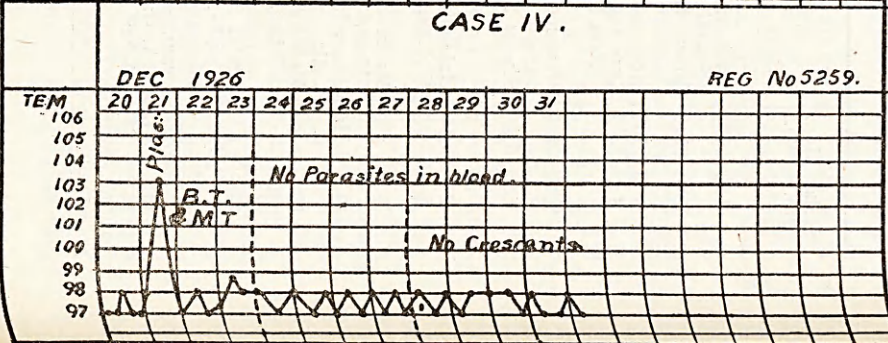 CASE IV.
DEC 1926
REG No 5259.
TEM 20 21 22 23 24 25 26 27 28 29 30 31
106
105
104
103
102
101
100
99
98
97
Plas:
B.T.
& M T
No Parasites in blood.
No Crescents